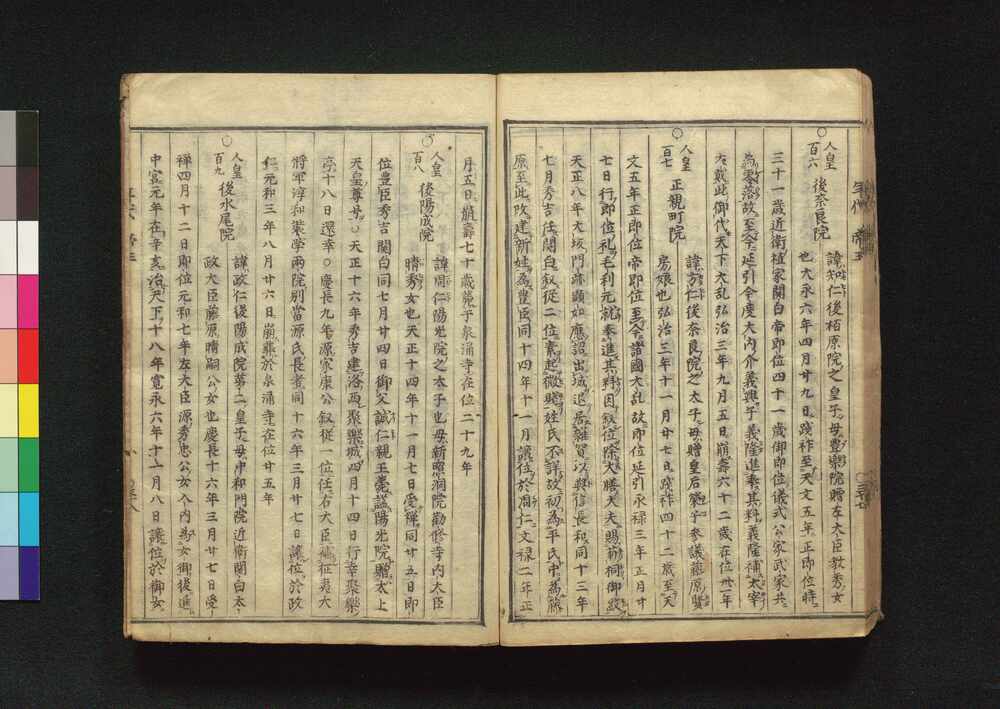 人皇百六 後奈良院 諱知仁後柏原院之皇子母豊樂院贈左大臣教秀女
也大永六年四月廿九日踐祚至天文五年正即位時
三十一歳近衛植家関白帝即位四十一歳御即位儀式公家武家共
為零落故至今延引今度大内介義興子義隆進奉其料義隆補太宰
大貳此御代天下大乱弘治三年九月五日崩壽六十二歳在位卅一年
人皇百七 正親町院 諱方仁後奈良院之太子母贈皇后榮子参議藤原賢
房娘也弘治三年十一月廿七日践祚四十二歳至天
文五年正即位帝即位至今諸國大乱故即位延引永禄三年正月廿
七日行即位礼毛利元就奉進其料因叙位除大膳大夫賜菊桐御紋
天正八年大坂門跡顕如應詔出城退居雜賀以與信長和同十三年
七月秀吉任関白叙從二位素起微賤姓氏不詳故初為平氏中為藤
原至此改建新姓為豊臣同十四年十一月讓位於周仁文禄二年正
月五日崩壽七十歳葬于泉涌寺在位二十九年
人皇百八 後陽成院 諱周仁陽光院之太子也母新昭洞院勸修寺内大臣
晴秀女也天正十四年十一月七日受禪同廿五日即
位豊臣秀吉関白同七月廿四日御父誠仁親王薨謚陽光院贈太上
天皇尊号○天正十六年秀吉建洛西聚樂城四月十四日行幸聚樂
亭十八日還幸○慶長九年源家康公叙従一位任右大臣補征夷大
将軍淳和奨学両院別當源氏長者同十六年三月廿七日讓位於政
仁元和三年八月廿六日崩葬於泉涌寺在位廿五年
人皇百九 後水尾院 諱政仁後陽成院第二皇子母中和門院近衛関白太
政大臣藤原晴嗣公女也慶長十六年三月廿七日受
禅四月十二日即位元和七年左大臣源秀忠公女入内為女御後進
中宮元年在辛亥治天下十八年寛永六年十一月八日讓位於御女